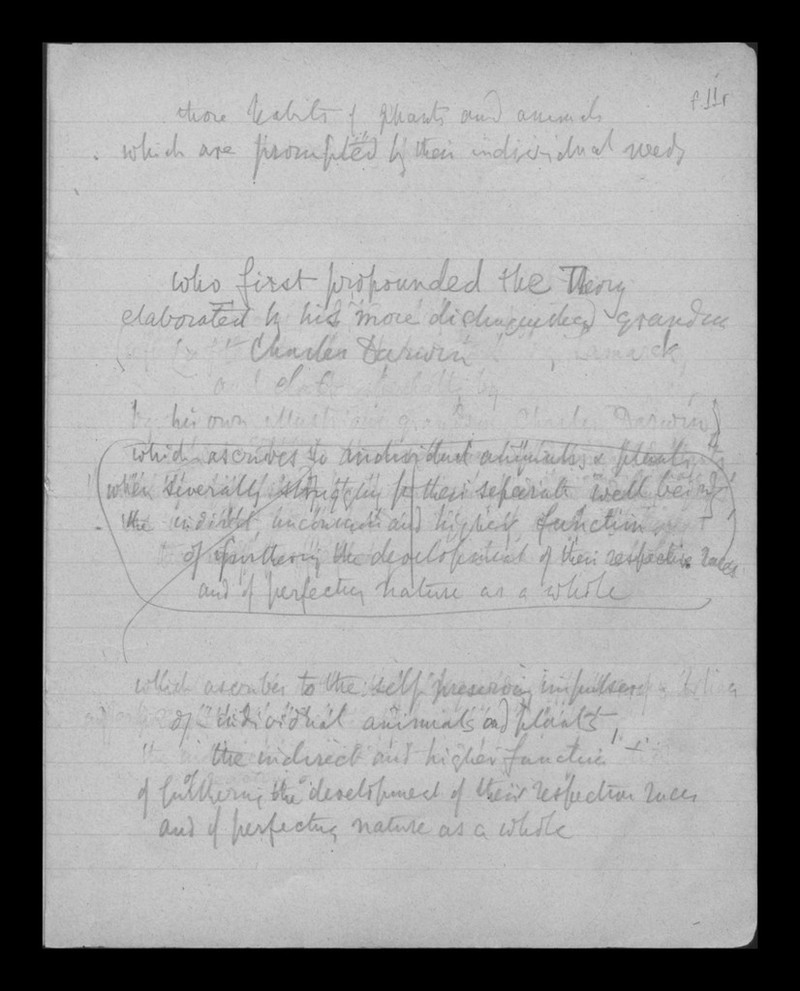 f.11r
those habits of plants and animals
which are prompted by their individual needs
who first propounded the Theory
elaborated by his more distinguished grandson
Charles Darwin
Lamarck,
and
by his own illustrious grandson Charles Darwin
which ascribes to individual animals & plants
when severally struggling for their separate well being
the indirect unconscious and highest function
of furthering the development of their respective races
and of perfecting nature as a whole
which ascribes to the self preserving impulses
of individual animals and plants,
the indirect and higher function
of furthering the development of their respective races
and of perfecting nature as a whole